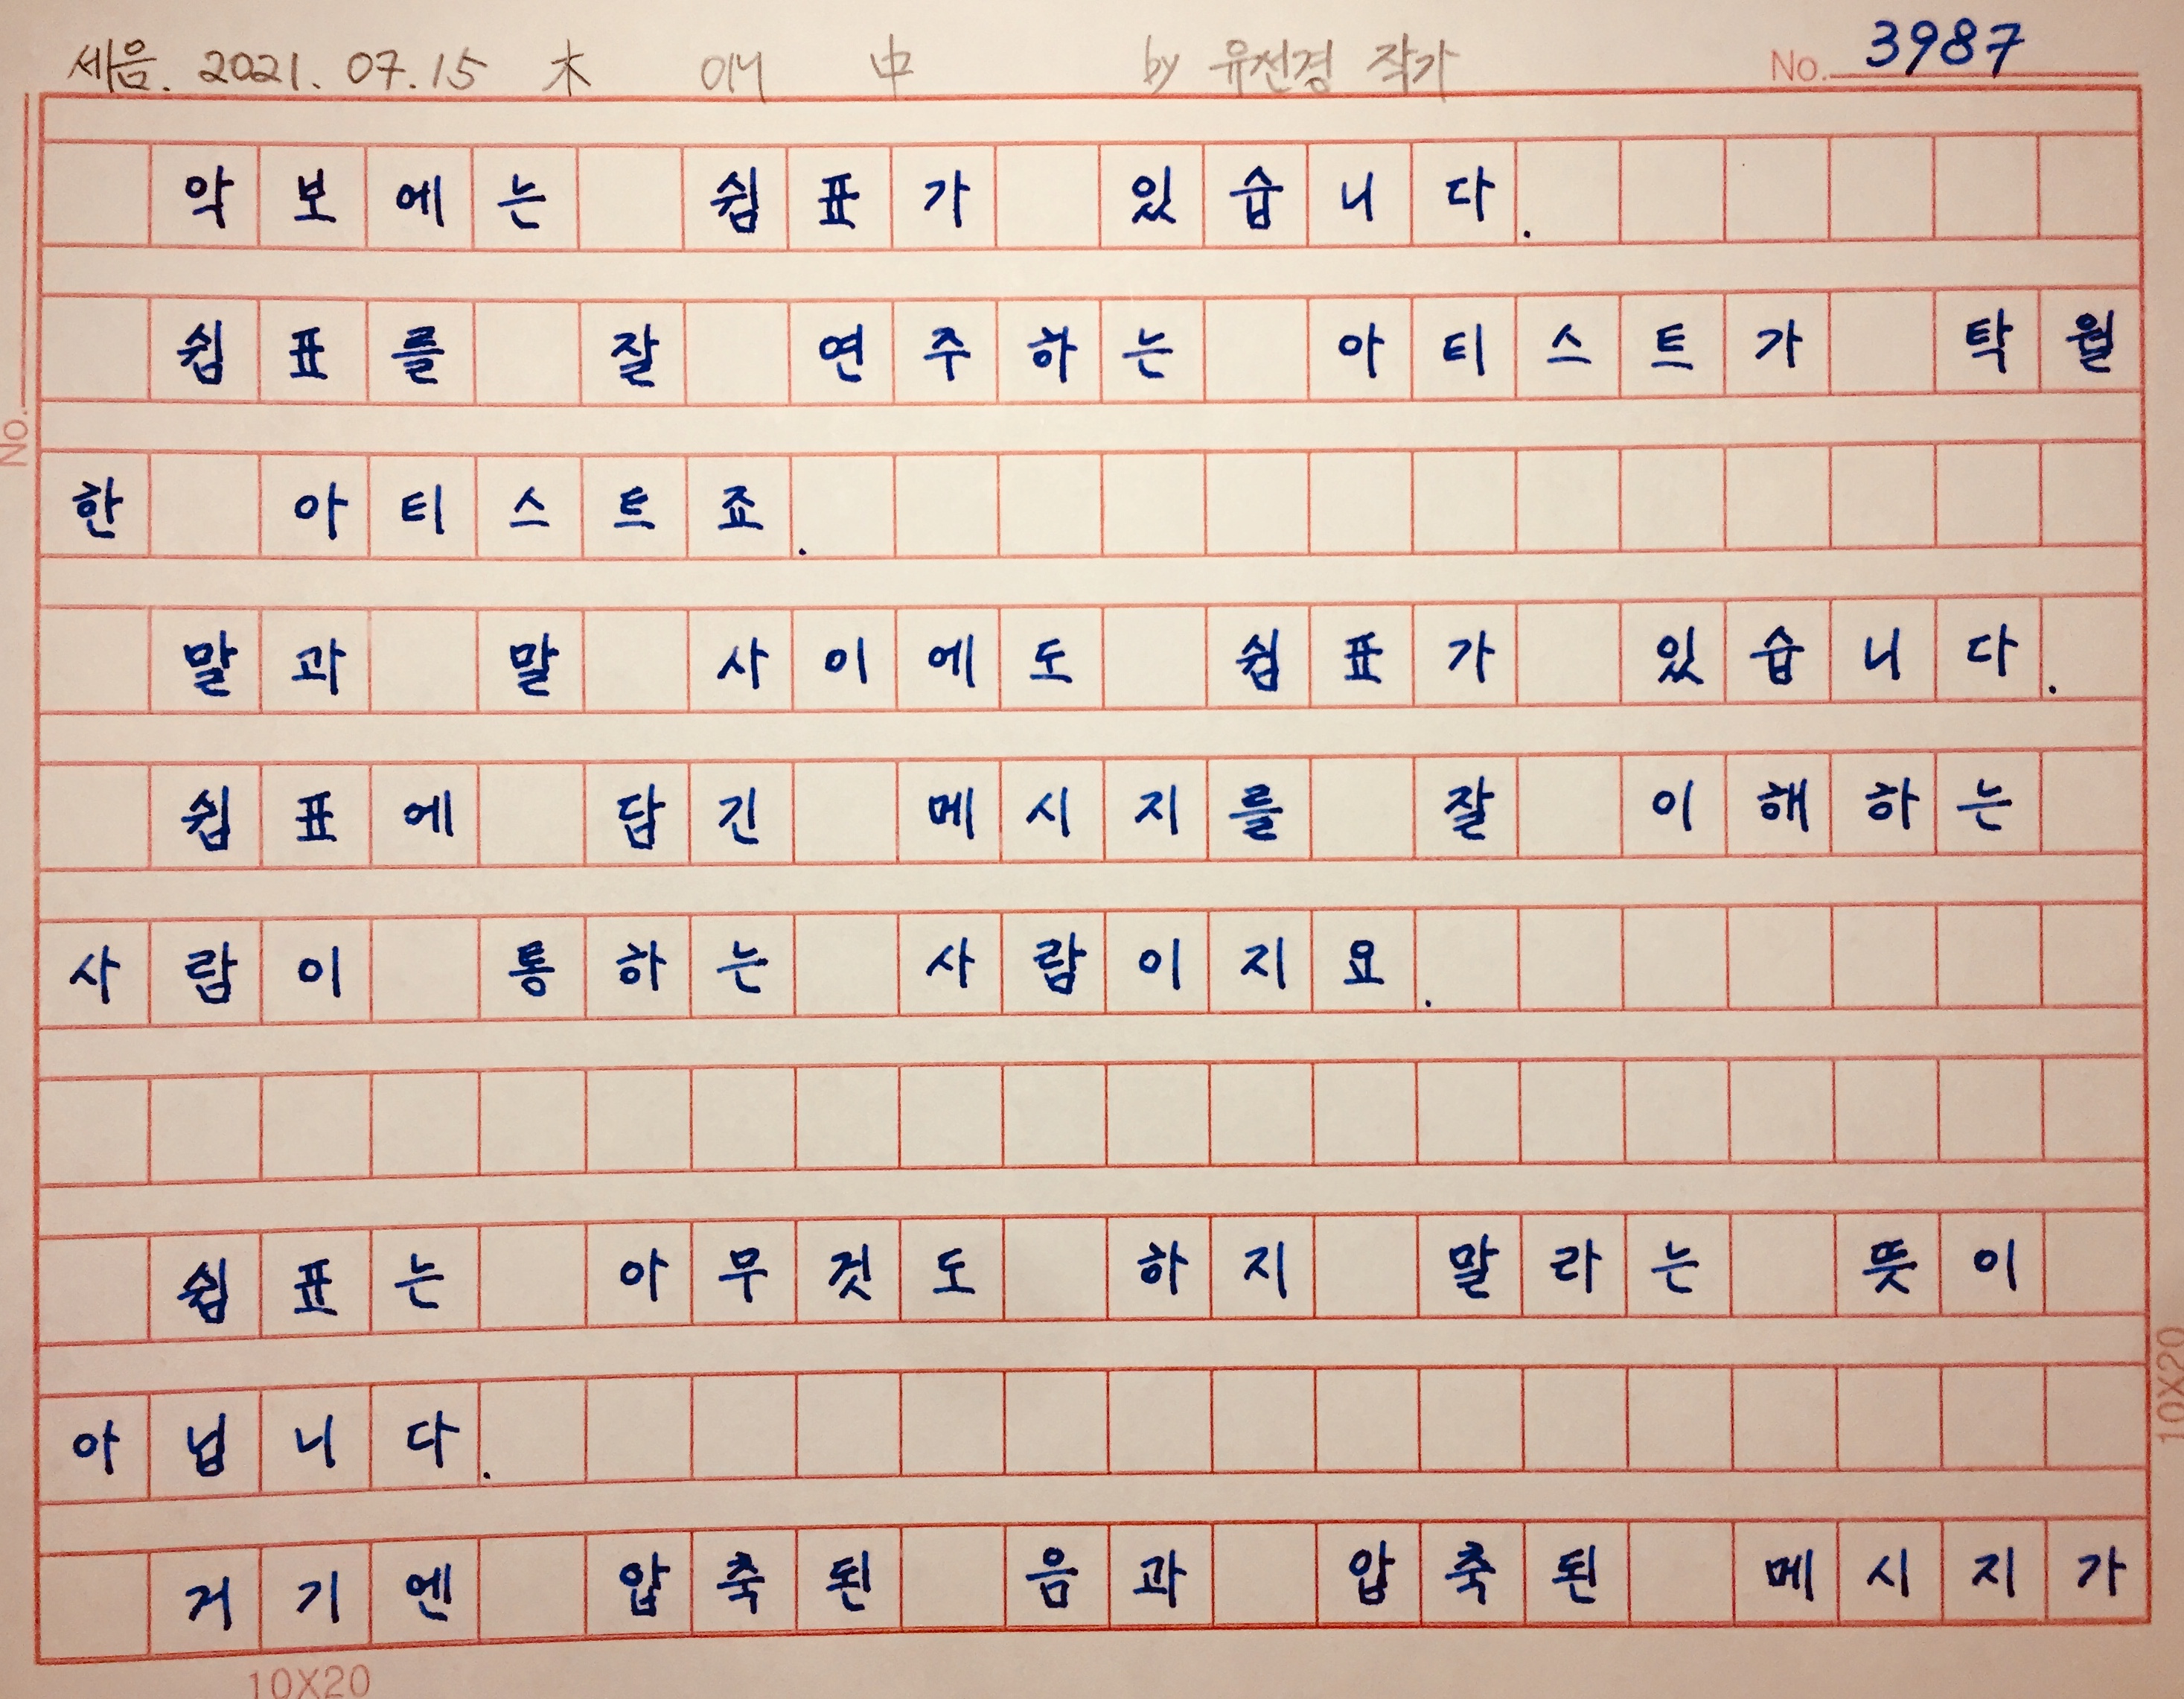 세음. 2021. 07. 15 木 애 中 by 유선경 작가 No. 3987
악보에는 쉼표가 있습니다.
쉼표를 잘 연주하는 아티스트가 탁월
한 아티스트죠.
말과 말 사이에도 쉼표가 있습니다.
쉼표에 담긴 메시지를 잘 이해하는
사람이 통하는 사람이지요.
쉼표는 아무것도 하지 말라는 뜻이
아닙니다.
거기엔 압축된 음과 압축된 메시지가
No.
10X20
10X20